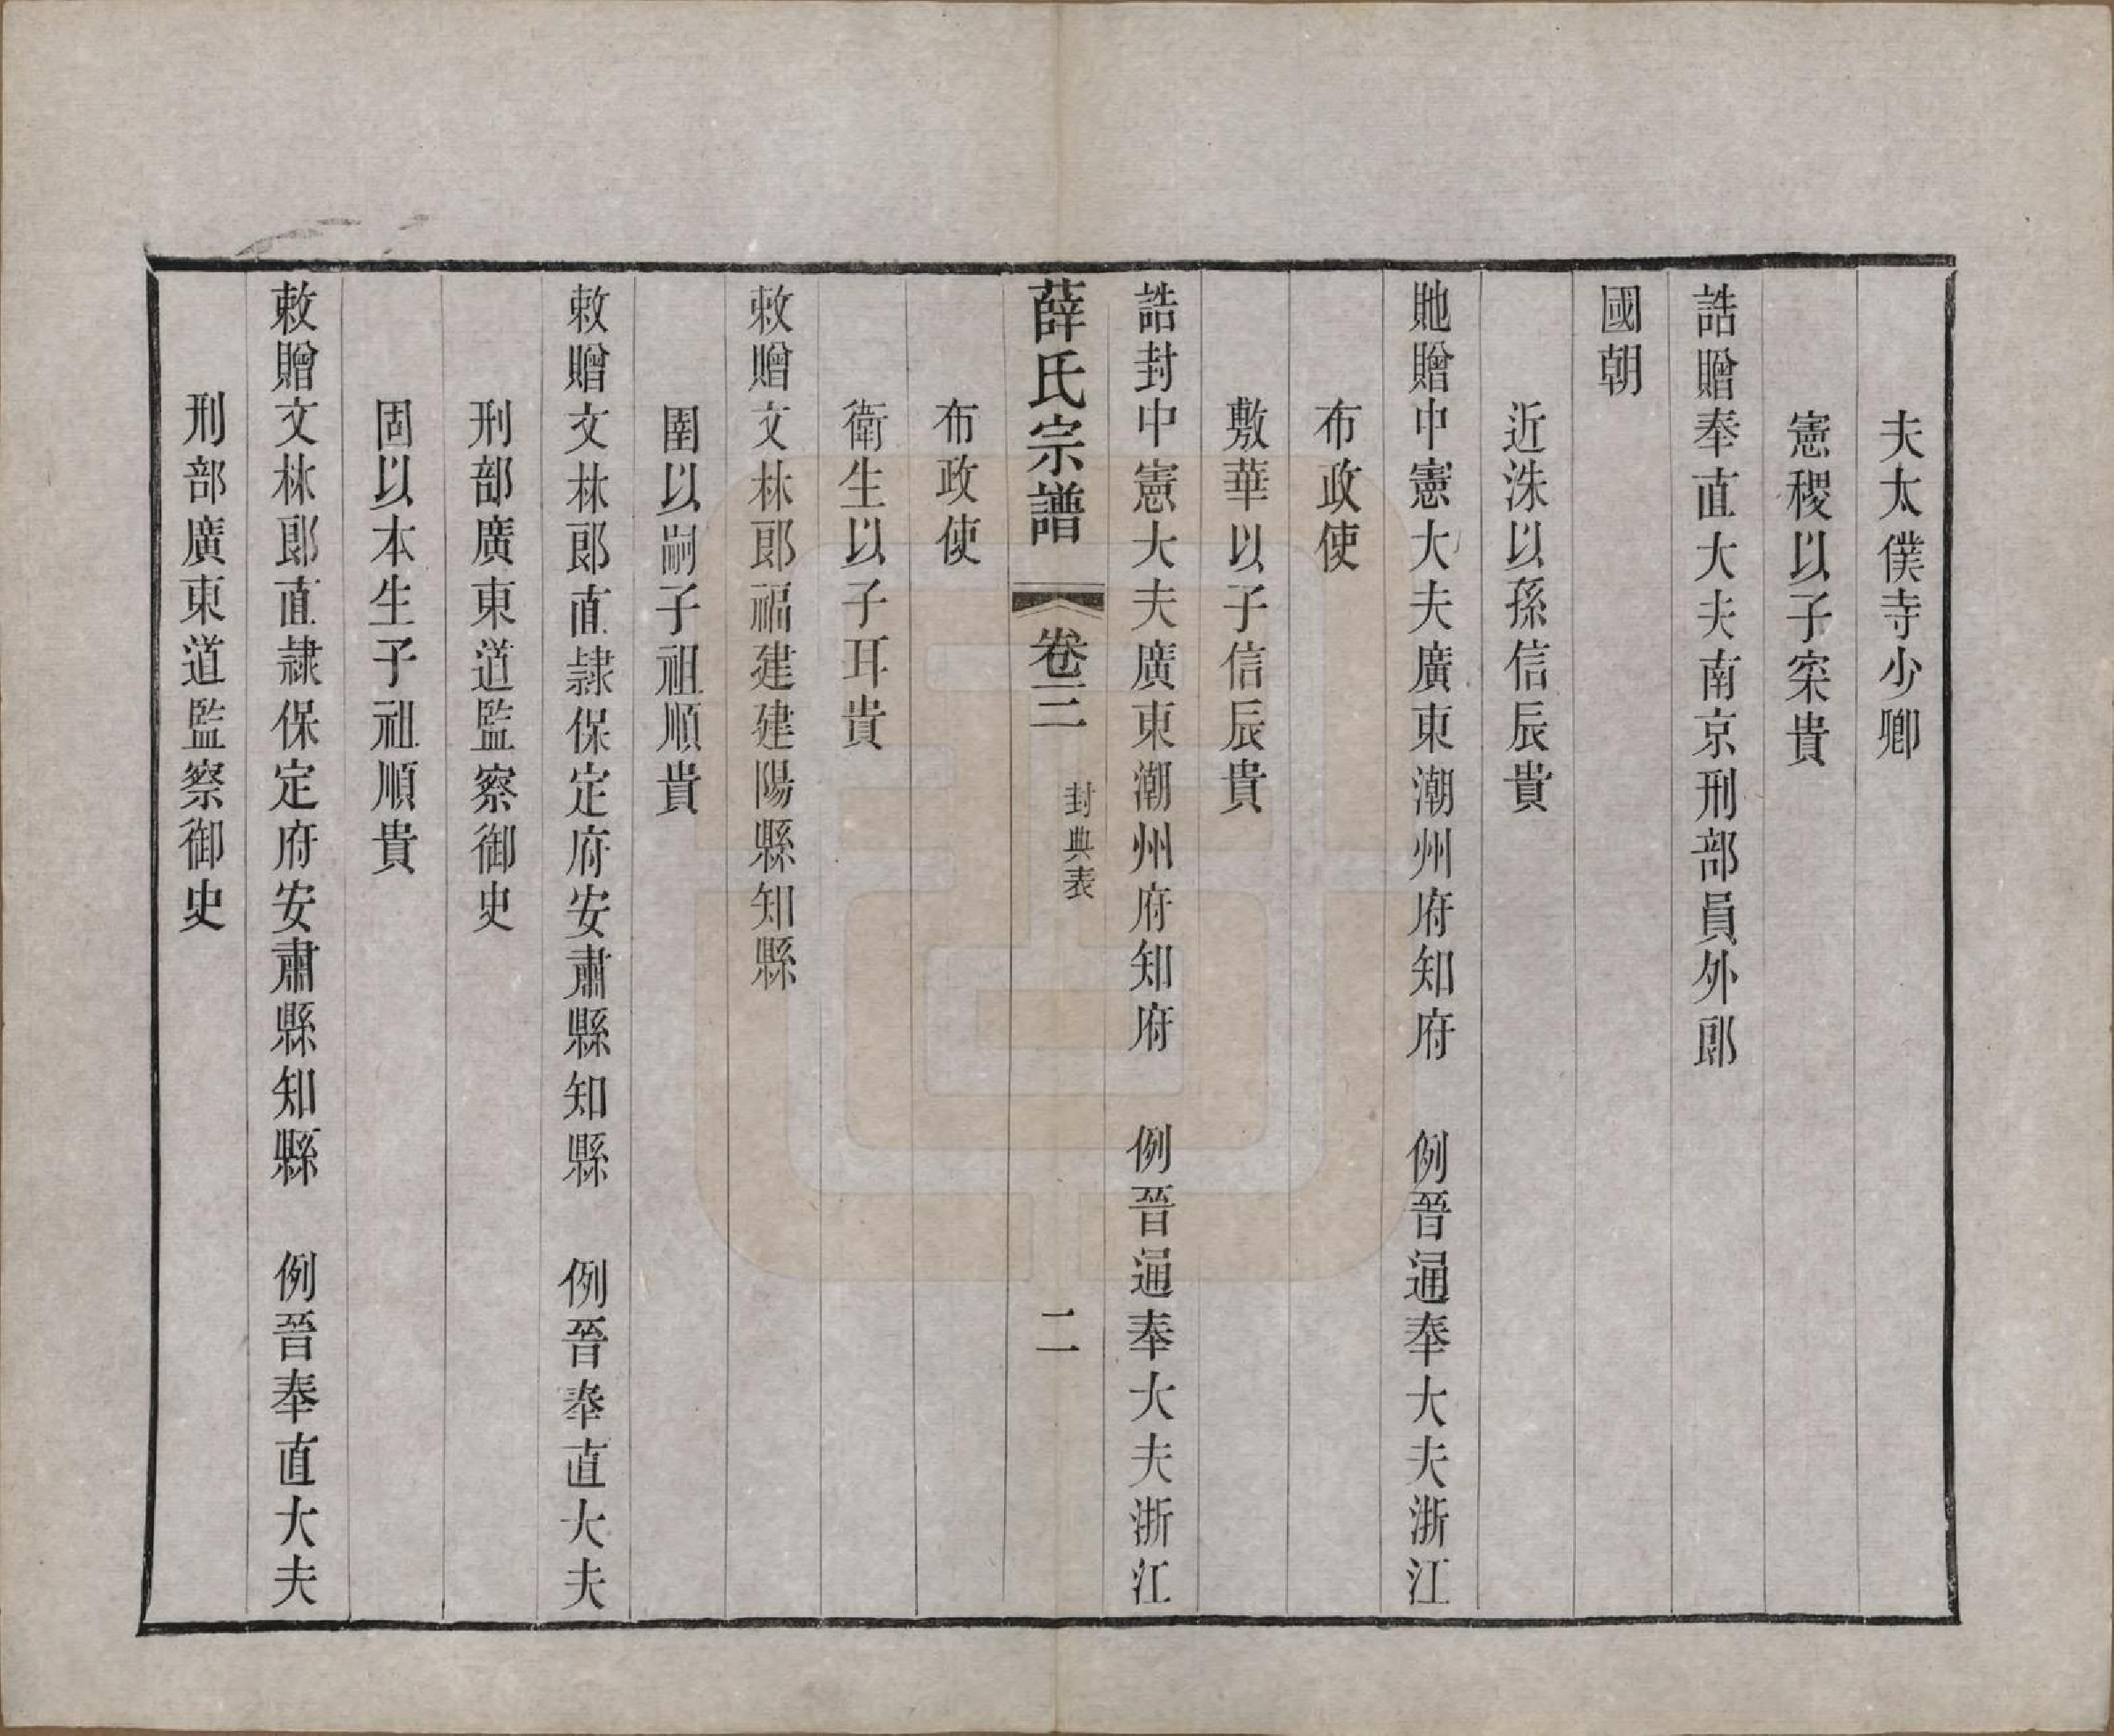 夫太僕寺少卿
憲稷以子寀貴
誥贈奉直大夫南京刑部員外郎
國朝
近洙以孫信辰貴
貤贈中憲大夫廣東潮州府知府　例晉通奉大夫浙江
布政使
敷華以子信辰貴
誥封中憲大夫廣東潮州府知府　例晉通奉大夫浙江
薛氏宗譜　卷三　封典表　二
布政使
衛生以子耳貴
敕贈文林郎福建建陽縣知縣
圉以嗣子祖順貴
敕贈文林郎直隷保定府安肅縣知縣　例晉奉直大夫
刑部廣東道監察御史
固以本生子祖順貴
敕贈文林郎直隷保定府安肅縣知縣　例晉奉直大夫
刑部廣東道監察御史